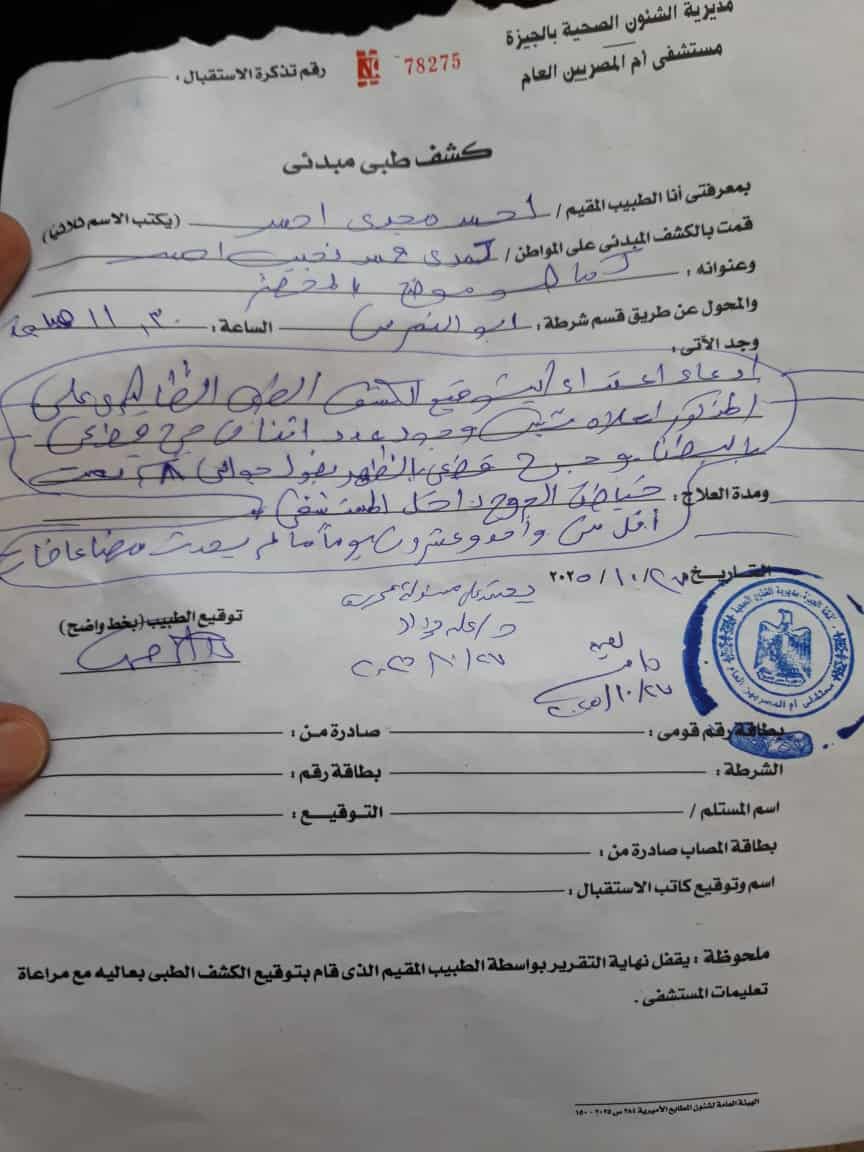 مديرية الشئون الصحية بالجيزة
مستشفى أم المصريين العام
رقم تذكرة الاستقبال : Nº 78275
كشف طبى مبدئى
بمعرفتى أنا الطبيب المقيم / احمد مجدى احمد (يكتب الاسم ثلاثى)
قمت بالكشف المبدئى على المواطن / نجيب
وعنوانه : كما هو موضح بالمحضر
والمحول عن طريق قسم شرطة : ابو النمرس الساعة : ١١,٣٠
وجد الآتى :
ادعاء اعتداء الكشف الطبى الظاهرى على
المذكور اعلاه تبين وجود عدد اثنان جرح قطعى
بالبطن و جرح قطعى بالظهر بطول حوالى ٨ تمت
ومدة العلاج : خياطة الجرح داخل المستشفى
أقل من واحد وعشرون يوماً ما لم يحدث مضاعفات
التاريخ ٢٠٢٥/١٠/٢
توقيع الطبيب (بخط واضح)
٢٠٢٥/١٠/٢٧
٢٠٢٥/١٠/٢٧
مستشفى أم المصريين العام
بطاقة رقم قومى : صادرة من :
الشرطة : بطاقة رقم :
اسم المستلم / التوقيع :
بطاقة المصاب صادرة من :
اسم وتوقيع كاتب الاستقبال :
ملحوظة : يقفل نهاية التقرير بواسطة الطبيب المقيم الذى قام بتوقيع الكشف الطبى بعاليه مع مراعاة
تعليمات المستشفى .
الهيئة العامة لشئون المطابع الأميرية ٢٨٤ س ٢٠٢٥ - ١٥٠٠